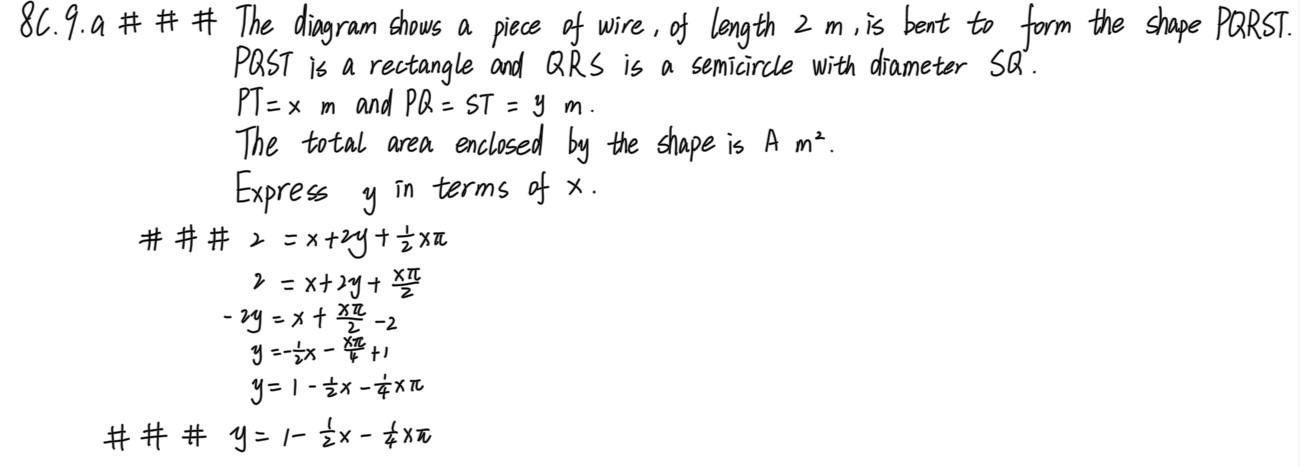 8C.9.a # # # The diagram shows a piece of wire, of length 2 m, is bent to form the shape PQRST.
PQST is a rectangle and QRS is a semicircle with diameter SQ.
PT = x m and PQ = ST = y m.
The total area enclosed by the shape is A m².
Express y in terms of x.
# # # 2 = x+2y+½xπ
2 = x+2y+ xπ/2
-2y = x + xπ/2 -2
y = -½x - xπ/4 +1
y = 1 - ½x - ¼xπ
# # # y = 1 - ½x - ¼xπ